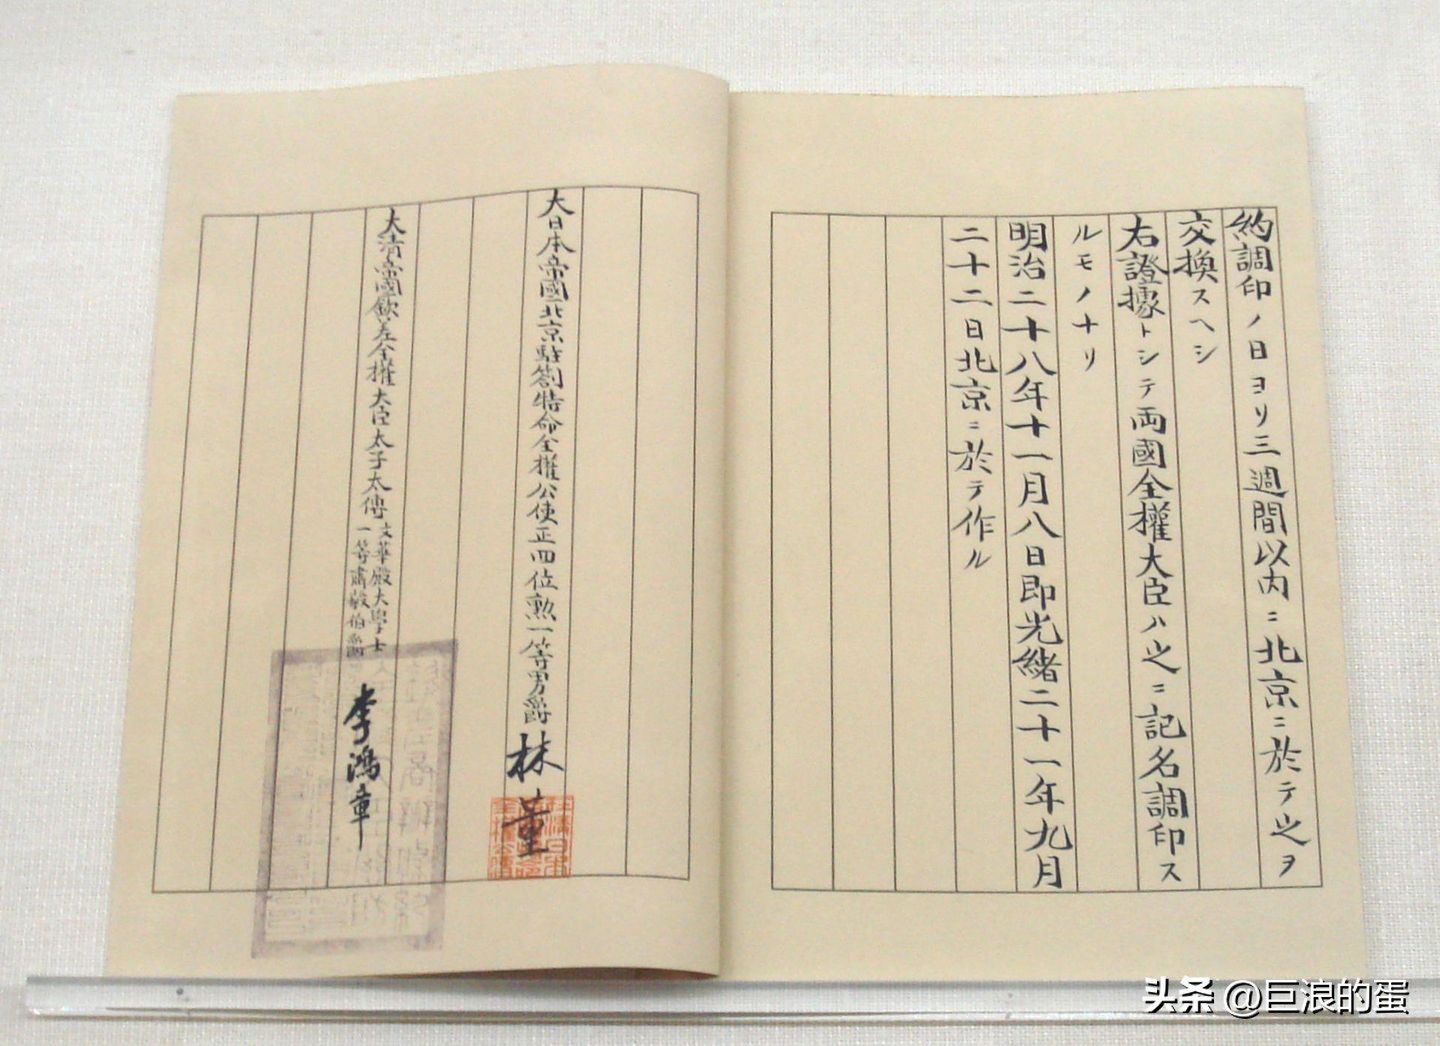 約調印ノ日ヨリ三週間以內ニ北京ニ於テ之ヲ
交換スヘシ
右證據トシテ兩國全權大臣ハ之ニ記名調印ス
ルモノナリ
明治二十八年十一月八日即光緒二十一年九月
二十二日北京ニ於テ作ル
大日本帝國北京駐劄特命全權公使正四位勲一等男爵 林董
大清帝國欽差全權大臣太子太傅文華殿大學士
一等肅毅伯爵 李鴻章
头条 @巨浪的蛋